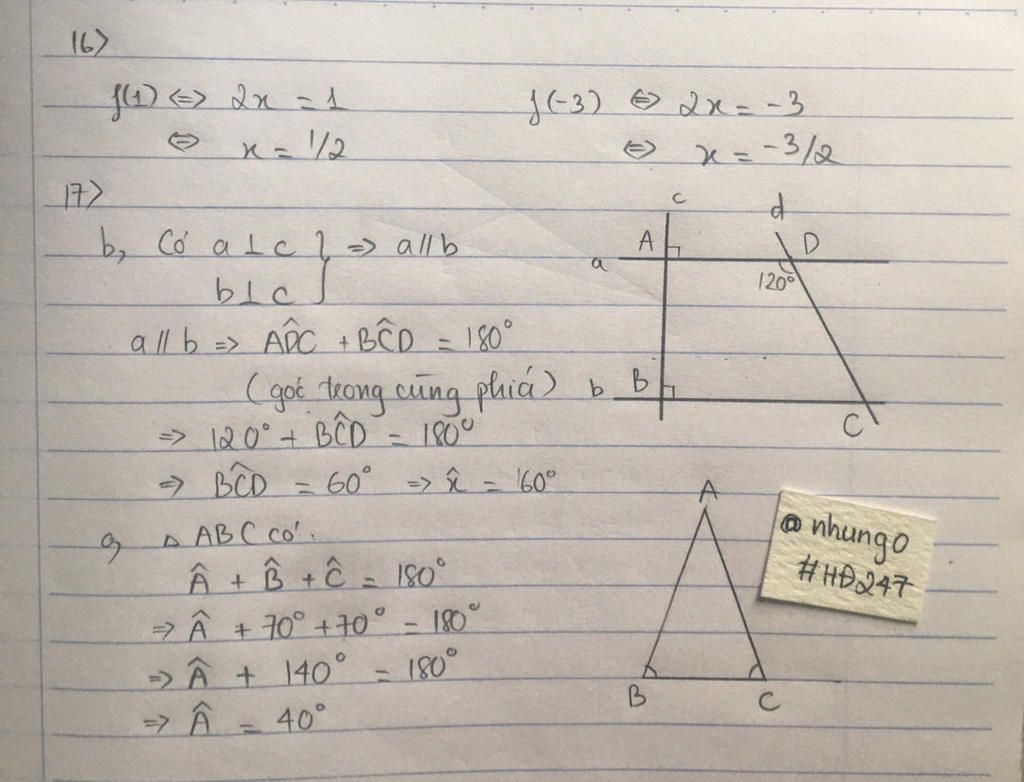 16)
f(1) ⇔ 2x = 1
⇔ x = 1/2
f(-3) ⇔ 2x = -3
⇔ x = -3/2
17)
b, Có a ⊥ c } ⇒ a // b
b ⊥ c
a // b ⇒ ADC̑ + BĈD = 180°
(góc trong cùng phiá)
⇒ 120° + BĈD = 180°
⇒ BĈD = 60° ⇒ x̂ = 60°
c
d
A
D
a
120°
b
B
C
Δ ABC có:
Â + B̂ + Ĉ = 180°
⇒ Â + 70° + 70° = 180°
⇒ Â + 140° = 180°
⇒ Â = 40°
A
B
C
@nhung0
#HĐ247